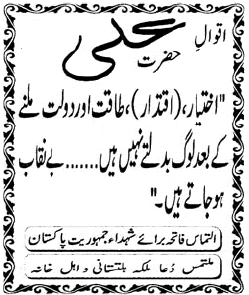 اقوالِ
حضرت علی
"اختیار، (اقتدار)، طاقت اور دولت ملنے
کے بعد لوگ بدلتے نہیں ہیں.......بے نقاب
ہو جاتے ہیں۔"
التماس فاتحہ برائے شہداء جمہوریت پاکستان
ملتمس دُعا ملکہ بلتستانی و اہل خانہ